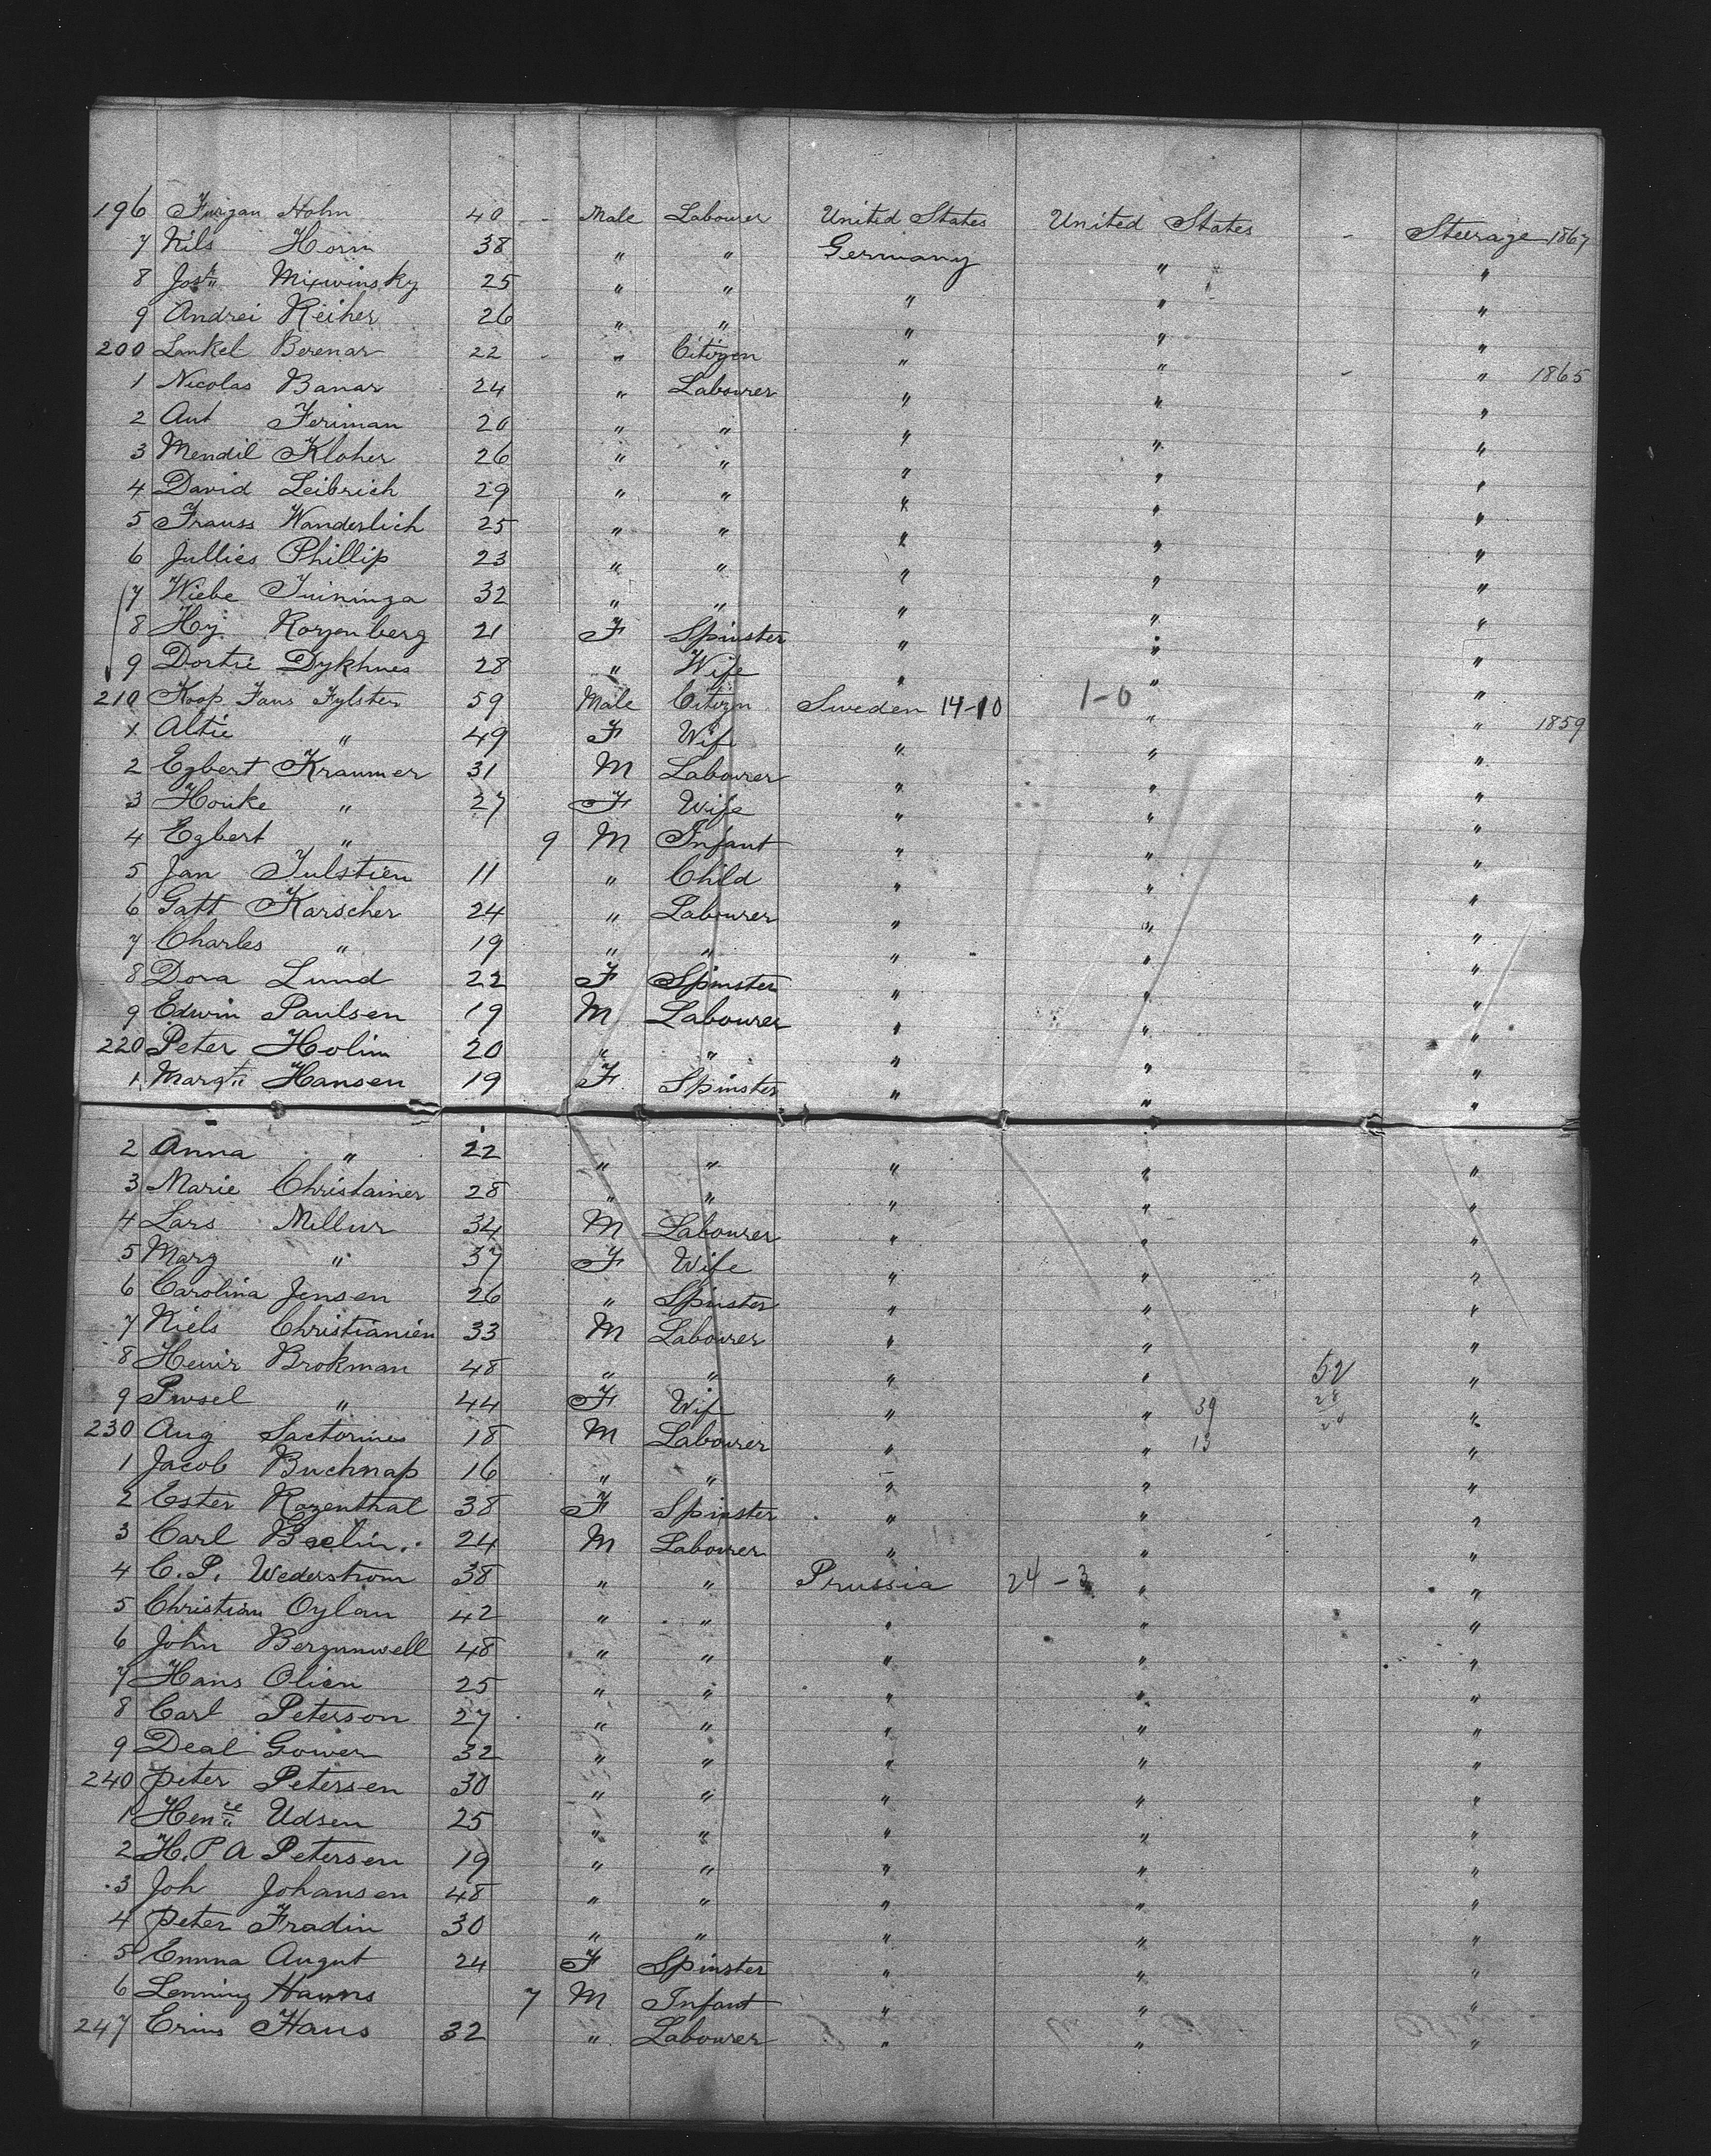 196 Jurgan Hohn 40 - Male Labourer United States United States - Steerage 1867
7 Nils Horn 38 " " Germany " "
8 Josh Mixwinsky 25 " " " " "
9 Andrei Reiher 26 " " " " "
200 Lankel Berenar 22 - " Citizen " " - " 1865
1 Nicolas Banar 24 " Labourer " " "
2 Ant Feriman 20 " " " " "
3 Mendil Kloher 26 " " " " "
4 David Leibrich 29 " " " " "
5 Frauss Wanderlich 25 " " " " "
6 Jullies Phillip 23 " " " " "
7 Wiebe Tuininga 32 " " " " "
8 Hy. Rozenberg 21 F Spinster " " "
9 Dortie Dykhues 28 " Wife " " "
210 Koop Jans Fylster 59 Male Citizn Sweden 14-10 1-0 " " 1859
1 Altie " 49 F Wife " " "
2 Egbert Kraumer 31 M Labourer " " "
3 Houke " 27 F Wife " " "
4 Egbert " 9 M Infant " " "
5 Jan Tulstien 11 " Child " " "
6 Gatt Karscher 24 " Labourer " " "
7 Charles " 19 " " " " "
8 Dora Lund 22 F Spinster " " "
9 Edwin Paulsen 19 M Labourer " " "
220 Peter Holim 20 " " " " "
1 Margt Hansen 19 F Spinster " " "
2 Anna " 22 " " " " "
3 Marie Christainer 28 " " " " "
4 Lars Millur 34 M Labourer " " "
5 Marg " 37 F Wife " " "
6 Carolina Jensen 26 " Spinster " " "
7 Niels Christianien 33 M Labourer " " "
8 Henir Brokman 48 " " " " 52 "
9 Pwsel " 44 F Wif " " 39 28 "
230 Aug Sactorines 18 M Labourer " " 13 "
1 Jacob Buchnap 16 " " " " "
2 Ester Rozenthal 38 F Spinster " " "
3 Carl Baelin 24 M Labourer " " "
4 C. P. Wederstrom 38 " " Prussia 24-3 " "
5 Christian Oylan 42 " " " " "
6 John Bergunwell 48 " " " " "
7 Hans Olien 25 " " " " "
8 Carl Peterson 27 " " " " "
9 Deal Gower 32 " " " " "
240 Peter Petersen 30 " " " " "
1 Hence Udsen 25 " " " " "
2 H. P A Petersen 19 " " " " "
3 Joh Johansen 48 " " " " "
4 Peter Fradin 30 " " " " "
5 Emma Augut 24 F Spinster " " "
6 Lenning Hanns 7 M Infant " " "
247 Erins Hans 32 " Labourer " " "